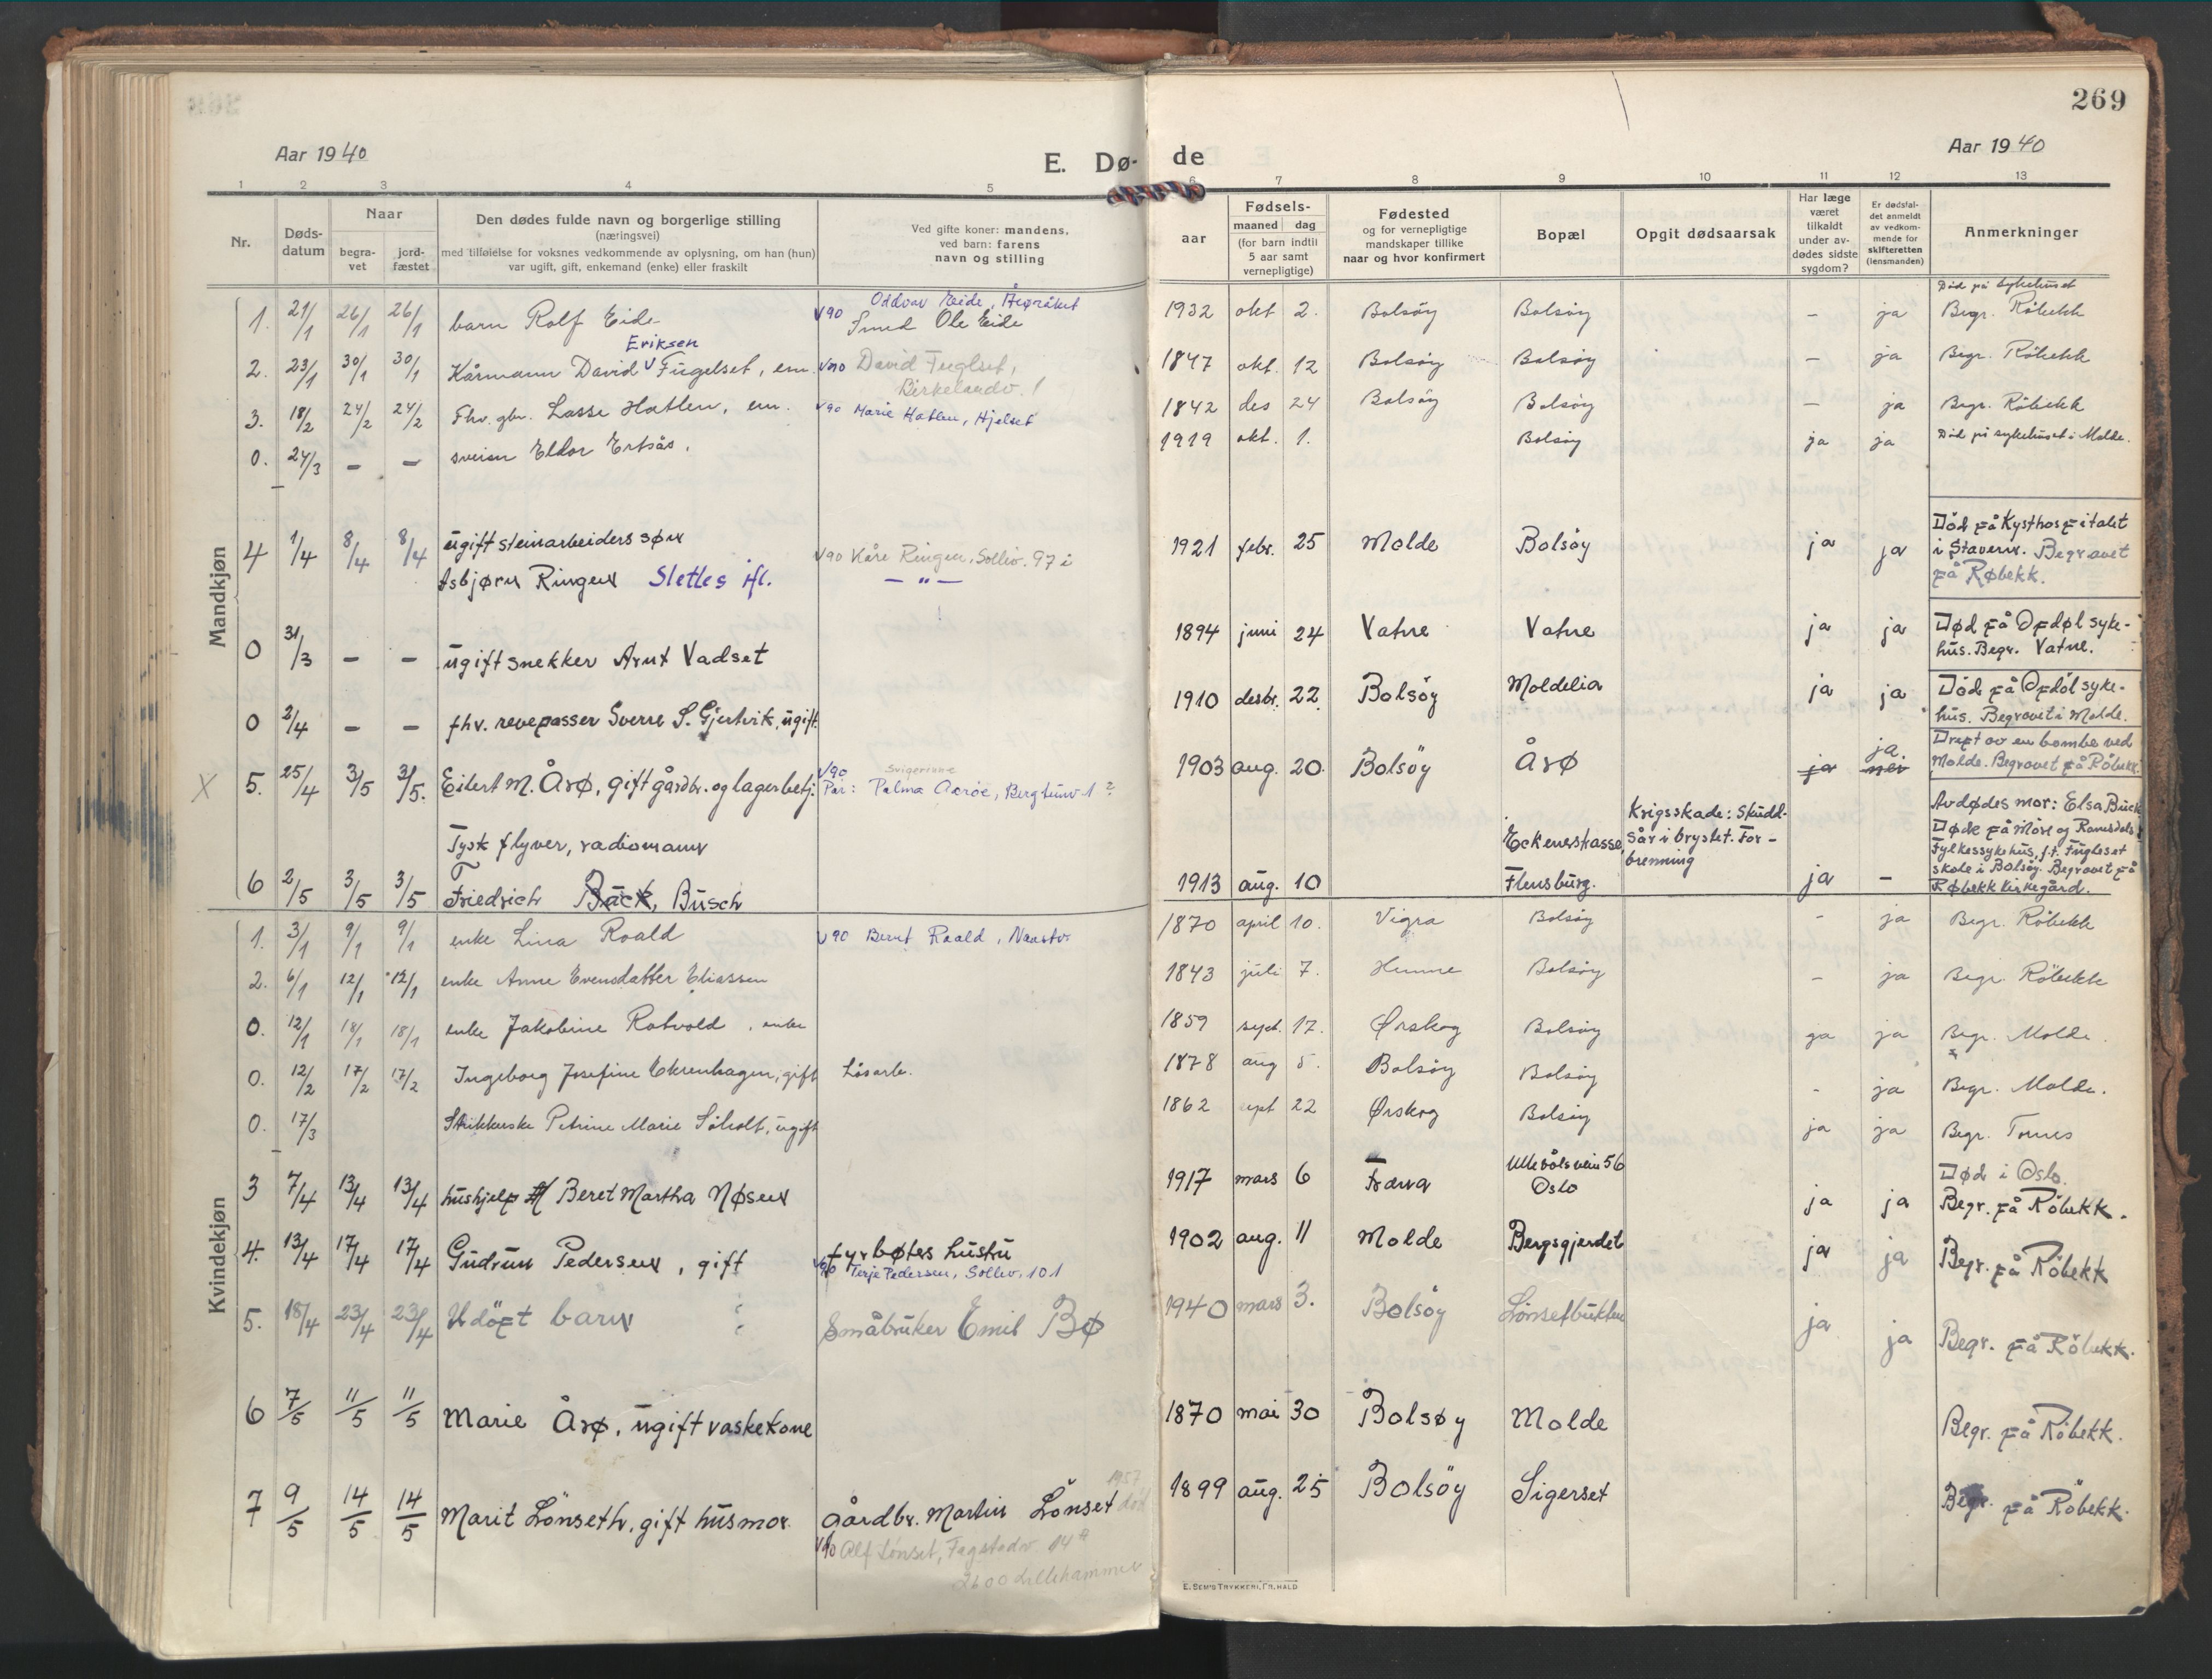 269
Aar 1940
E. Dø-
de
Aar 1940
1 2 3 4 5 6 7 8 9 10 11 12 13
Nr.
Døds-
datum
Naar
begra-
vet
jord-
fæstet
Den dødes fulde navn og borgerlige stilling
(næringsvei)
med tilføielse for voksnes vedkommende av oplysning, om han (hun)
var ugift, gift, enkemand (enke) eller fraskilt
Ved gifte koner: mandens,
ved barn: farens
navn og stilling
Fødsels-
aar
maaned dag
(for barn indtil
5 aar samt
vernepligtige)
Fødested
og for vernepligtige
mandskaper tillike
naar og hvor konfirmert
Bopæl
Opgit dødsaarsak
Har læge
været
tilkaldt
under av-
dødes sidste
sygdom?
Er dødsfal-
det anmeldt
av vedkom-
mende for
skifteretten
(lensmanden)
Anmerkninger
Mandkjøn
Oddvar Eide,
Død på sykehuset
1. 21/1 26/1 26/1 barn Rolf Eide V90 Smed Ole Eide 1932 okt 2. Bolsöy Bolsöy - ja Begr. Röbekk
Eriksen
2. 23/1 30/1 30/1 Kårmann David V Fugelset, em. V90 David Fuglset, 1847 okt. 12 Bolsöy Bolsöy - ja Begr. Röbekk
Birkelandv. 1
3. 18/2 24/2 24/2 Fhv. gbr. Lasse Hatlen, em. V90 Marie Hatlen, Hjelset 1842 des 24 Bolsöy Bolsöy - ja Begr. Röbekk
0. 24/3 - - sveiser Eldor Ertsås. 1919 okt. 1. Bolsöy ja ja Död på sykehuset i Molde.
4 1/4 8/4 8/4 ugift steinarbeiders sønn 1921 febr. 25 Molde Bolsöy ja ja Död på Kysthospitalet
i Stavern. Begravet
på Røbekk.
Asbjørn Ringen Slettes ifl. V90 Kåre Ringen, Solliv. 97 i
- " -
0 31/3 - - ugift snekker Arnt Vadset 1894 juni 24 Vatne Vatne ja ja Død på Opdøl syke-
hus. Begr. Vatne.
0 2/4 - - fhv. revepasser Sverre S. Gjertvik, ugift. 1910 desbr. 22 Bolsöy Moldelia ja ja Död på Opdöl syke-
hus. Begravet i Molde.
Svigerinne
X 5. 25/4 3/5 3/5. Eilert M. Årø, gift gårdbr. og lagerbetj. V90 Pår: Palma Aarøe, Bergtunv 1 ? 1903 aug. 20. Bolsöy Årø ja ja. nei Drept av en bombe ved
Molde. Begravet på Röbekk.
Tysk flyver, radiomann
6 2/5 3/5 3/5 Friedrich Bück, Büsch 1913 aug. 10 Eckenerstrasse,
Flensburg.
Krigsskade: Skudd-
sår i brystet. For-
brenning
ja -
Avdødes mor: Elsa Bück
Døde på Möre og Romsdals
Fylkessykehus, f.t. Fugleset
skole i Bolsöy. Begravet på
Røbekk kirkegård.
Kvindekjøn
1. 3/1 9/1 9/1 enke Lina Roald V90 Bernt Roald, 1870 april 10. Vigra Bolsöy - ja Begr. Röbekk
2. 6/1 12/1 12/1 enke Anne Evensdatter Eliassen 1843 juli 7. Hemne Bolsöy - ja Begr. Röbekk
0. 12/1 18/1 18/1 enke Jakobine Rotvold, enke 1859 sept. 17. Ørskog Bolsöy ja ja Begr. Molde.
0. 12/2 17/2 17/2 Ingeborg Josefine Ekrenhagen, gift Lösarb. 1878 aug 5. Bolsöy Bolsöy - ja Begr. Molde.
0. 17/3 Strikkerske Petrine Marie Söholt, ugift 1862 sept 22 Ørskog Bolsöy ja ja Begr. Tornes
3 7/4 13/4 13/4 hushjelp Beret Martha Nøsen 1917 mars 6 Fræna Ullevålsvein 56
Oslo ja ja Død i Oslo.
Begr. på Röbekk.
4. 13/4 17/4 17/4 Gudrun Pedersen, gift fyrbøters hustru 1902 aug. 11 Molde Bergsgjerdet ja ja Begr. på Röbekk
V90 Terje Pedersen, Solliv. 101
5. 18/4 23/4 23/4 Udöpt barn Småbruker Emil Bø 1940 mars 3. Bolsöy Lønsetbukten ja ja Begr. på Röbekk.
6 7/5 11/5 11/5 Marie Årø, ugift vaskekone 1870 mai 30 Bolsøy Molde Begr. på Röbekk.
1957
7 9/5 14/5 14/5 Marit Lönseth, gift husmor. Gårdbr. Martin Lönset død 1899 aug. 25 Bolsöy Sigerset Begr. på Röbekk.
V90 Alf Lønset, Fagstadv. 14 A
2600 Lillehammer
E. SEM'S TRYKKERI, FR. HALD